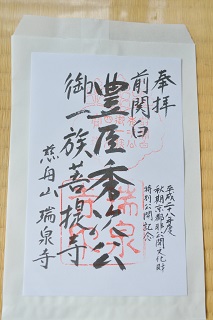 奉拝
前関白
豊臣秀次公
御一族菩提寺
慈舟山 瑞泉寺
平成二八年度
秋期京都非公開文化財
特別公開記念
瑞泉寺印